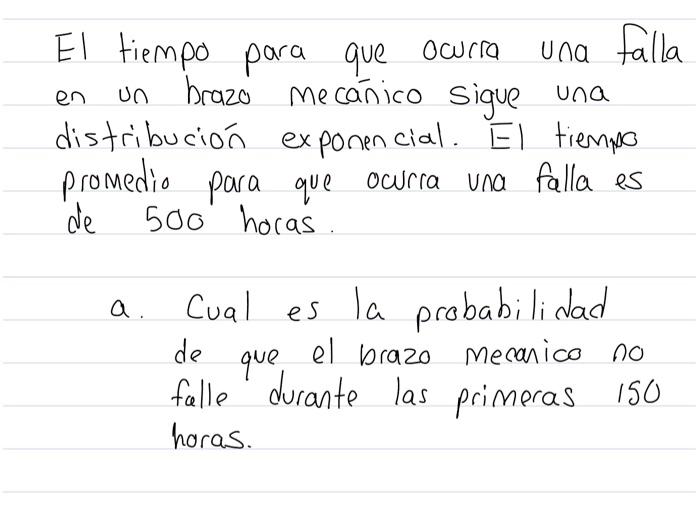 El tiempo para que ocurra una falla
en un brazo mecánico sigue una
distribución exponencial. El tiempo
promedio para que ocurra una falla es
de 500 horas.
a. Cual es la probabilidad
de que el brazo mecanico no
falle durante las primeras 150
horas.